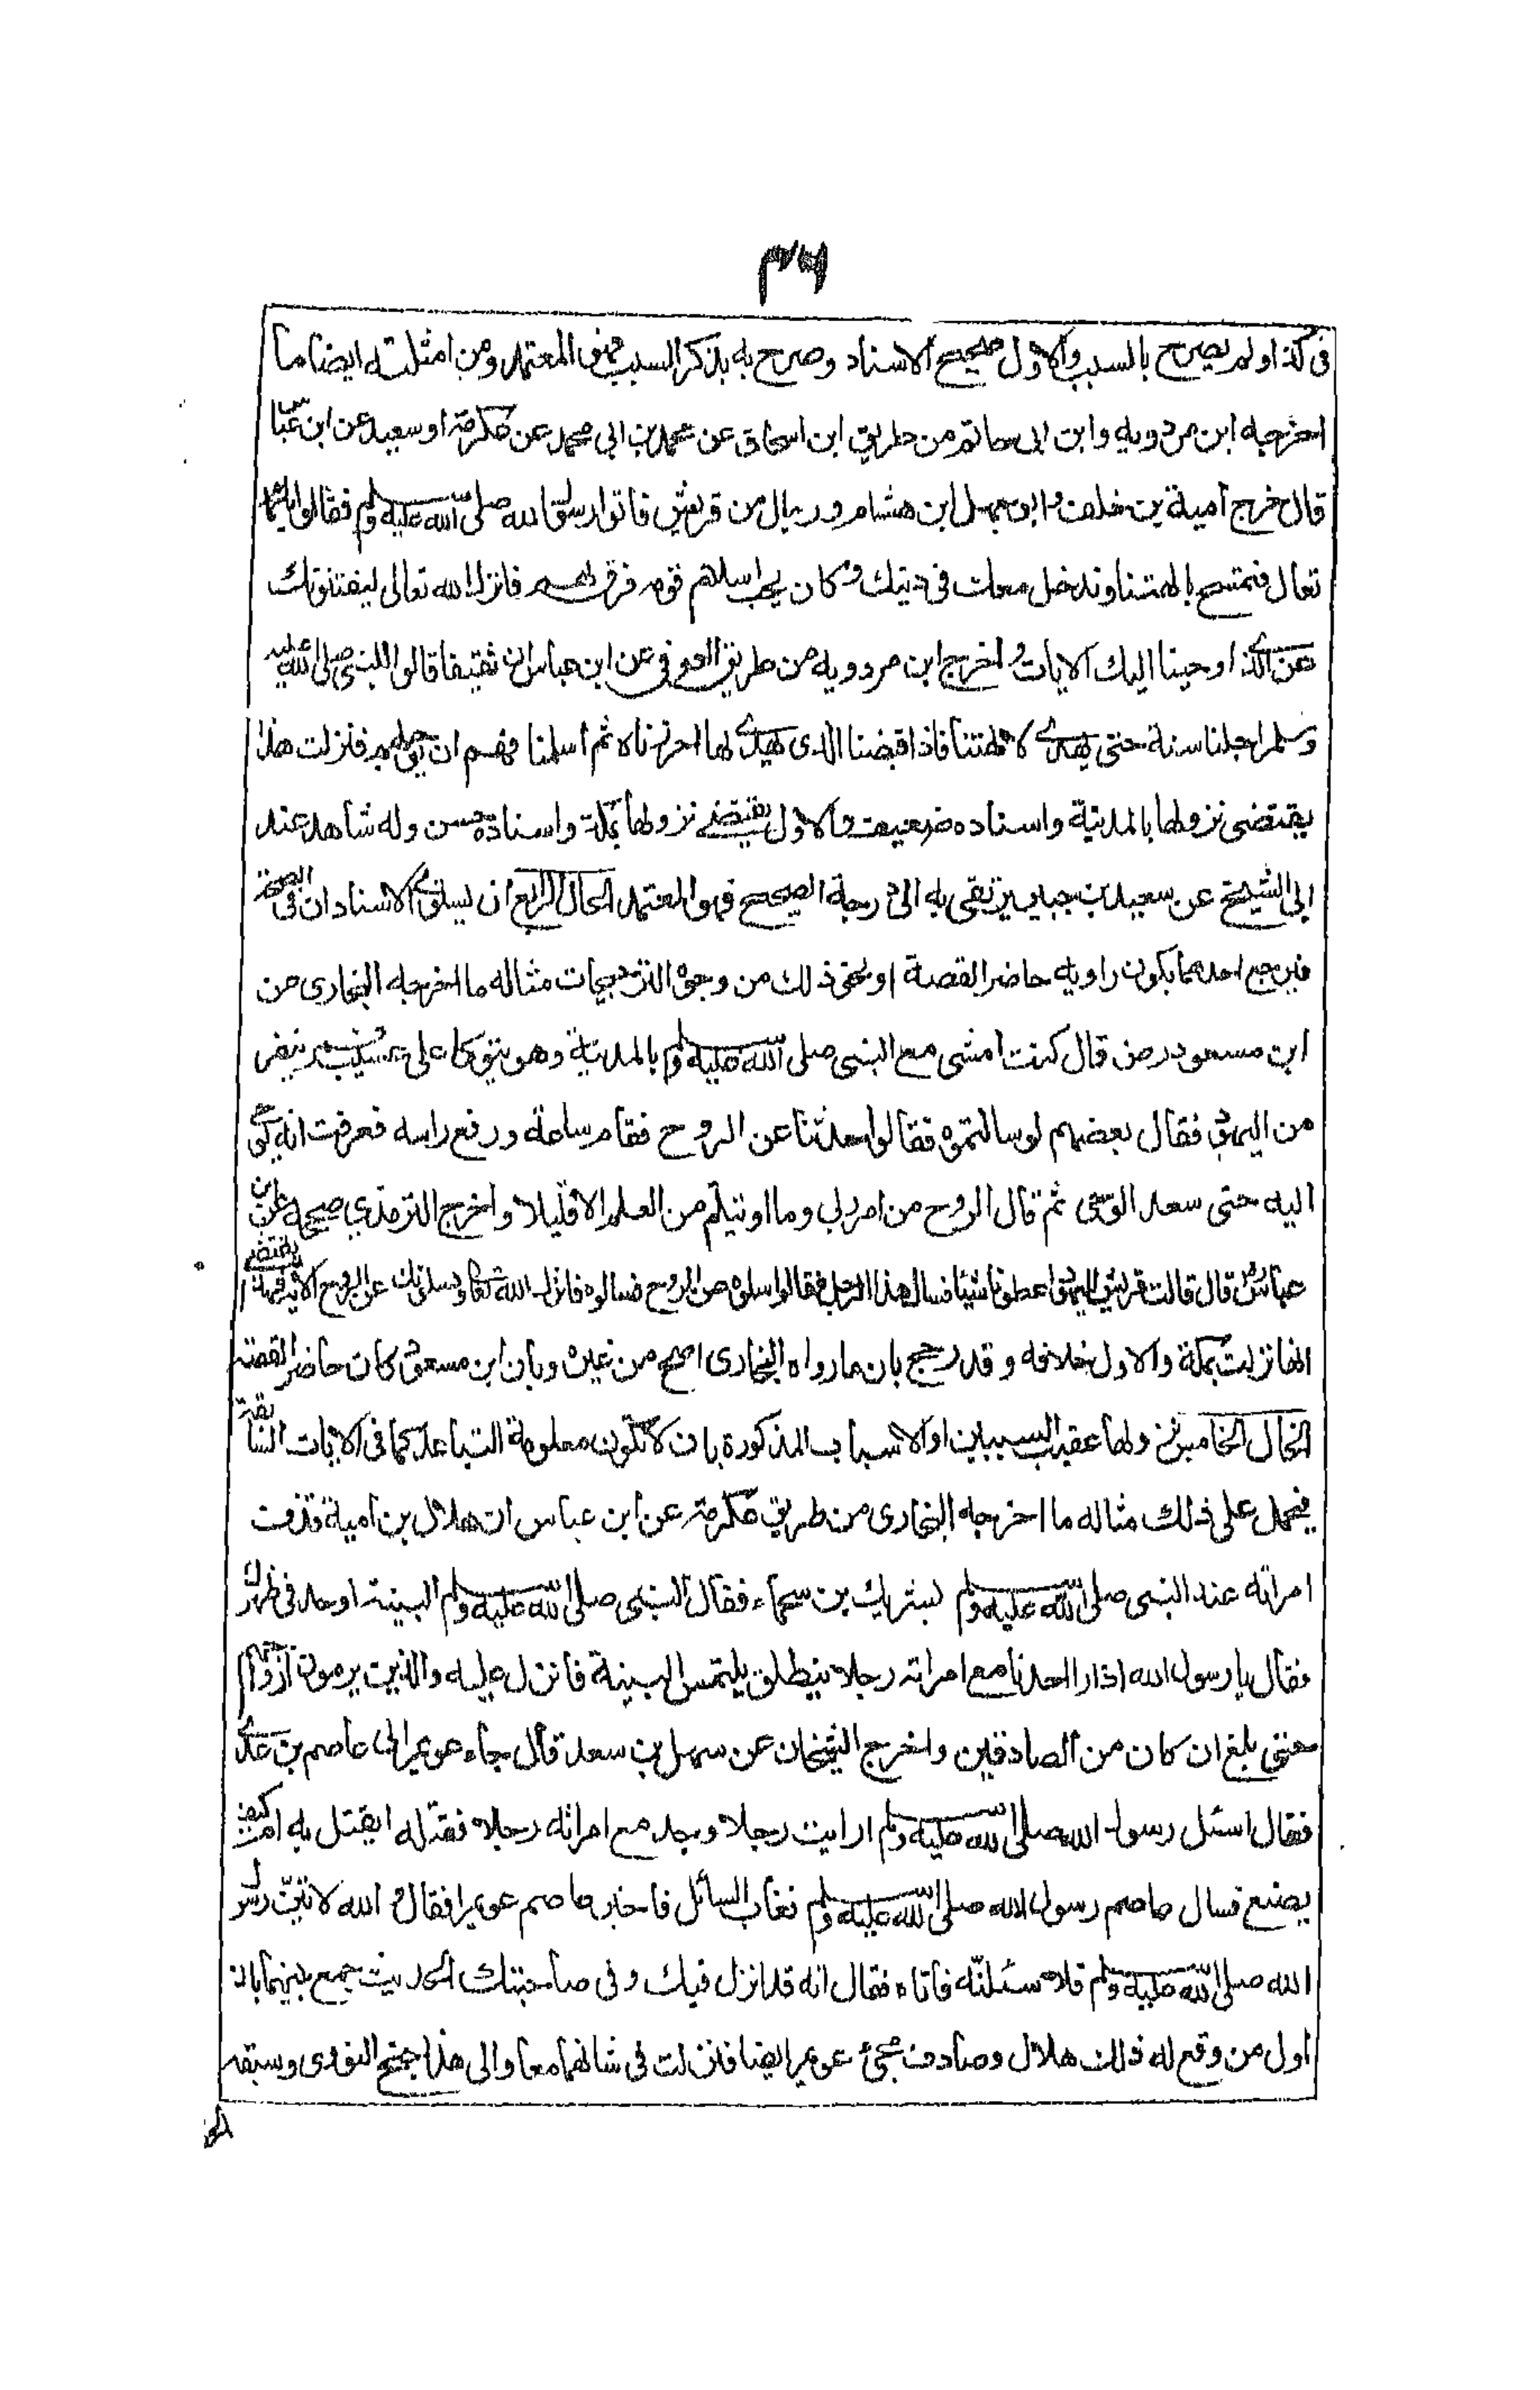 فى كذا ولم يصرح بالسبب والاول صحيح الاسناد وصرح به بذكر السبب فهو المعتمد ومن امثلته ايضا ما
اخرجه ابن مردويه وابن ابى حاتم من طريق ابن اسحاق عن محمد بن ابى محمد عن عكرمة او سعيد عن ابن عباس
قال خرج امية بن خلف وابو جهل ابن هشام ورجال من قريش فاتوا رسول الله صلى الله عليه وسلم فقالوا يا محمد
تعال فتمسح بالهتنا وندخل معك فى دينك وكان يحب اسلام قومه فرق لهم فانزل الله تعالى ليفتنونك
عن الذى اوحينا اليك الايات واخرج ابن مردويه من طريق العوفى عن ابن عباس ان ثقيفا قالوا للنبى صلى الله عليه
وسلم اجلنا سنة حتى يهدى لالهتنا فاذا قبضنا الذى يهدى لها احرزناه ثم اسلمنا فهم ان يؤجلهم فنزلت هذا
يقتضى نزولها بالمدينة واسناده ضعيف والاول يقتضى نزولها بمكة واسناده حسن وله شاهد عند
ابى الشيخ عن سعيد بن جبير يرتقى به الى درجة الصحيح فهو المعتمد الحال الرابع ان يستوى الاسنادان فى الصحة
فيرجح احدهما بكون راويه حاضر القصة او نحو ذلك من وجوه الترجيحات مثاله ما اخرجه البخارى من
ابن مسعود رض قال كنت امشى مع النبى صلى الله عليه وسلم بالمدينة وهو يتوكا على عسيب فمر بنفر
من اليهود فقال بعضهم لو سالتموه فقالوا حدثنا عن الروح فقام ساعة ورفع راسه فعرفت انه يوحى
اليه حتى صعد الوحى ثم قال الروح من امر ربى وما اوتيتم من العلم الا قليلا واخرج الترمذى وصححه عن ابن
عباس رض قال قالت قريش لليهود اعطونا شيئا نسال هذا الرجل فقالوا سلوه عن الروح فسالوه فانزل الله تعالى ويسئلونك عن الروح الاية فهذا يقتضى
انها نزلت بمكة والاول خلافه وقد رجح بان ما رواه البخارى اصح من غيره وبان ابن مسعود كان حاضر القصة
الحال الخامس نزولها عقيب السببين او الاسباب المذكورة بان لا تكون معلومة التباعد كما فى الايات السابقة
فيحمل على ذلك مثاله ما اخرجه البخارى من طريق عكرمة عن ابن عباس ان هلال بن امية قذف
امراته عند النبى صلى الله عليه وسلم بشريك بن سحماء فقال النبى صلى الله عليه وسلم البينة او حد فى ظهرك
فقال يا رسول الله اذا راى احدنا مع امراته رجلا ينطلق يلتمس البينة فانزل عليه والذين يرمون ازواجهم
حتى بلغ ان كان من الصادقين واخرج الشيخان عن سهل بن سعد قال جاء عويمر الى عاصم بن عدى
فقال اسئل رسول الله صلى الله عليه وسلم ارايت رجلا وجد مع امراته رجلا فقتله ايقتل به ام كيف
يصنع فسال عاصم رسول الله صلى الله عليه وسلم فعاب السائل فاخبر عاصم عويمرا فقال والله لاتين رسول
الله صلى الله عليه وسلم فلاسئلنه فاتاه فقال انه قد انزل فيك وفى صاحبتك الحديث جمع بينهما بان
اول من وقع له ذلك هلال وصادف مجئ عويمر ايضا فنزلت فى شانهما معا والى هذا جنح النووى وسبقه